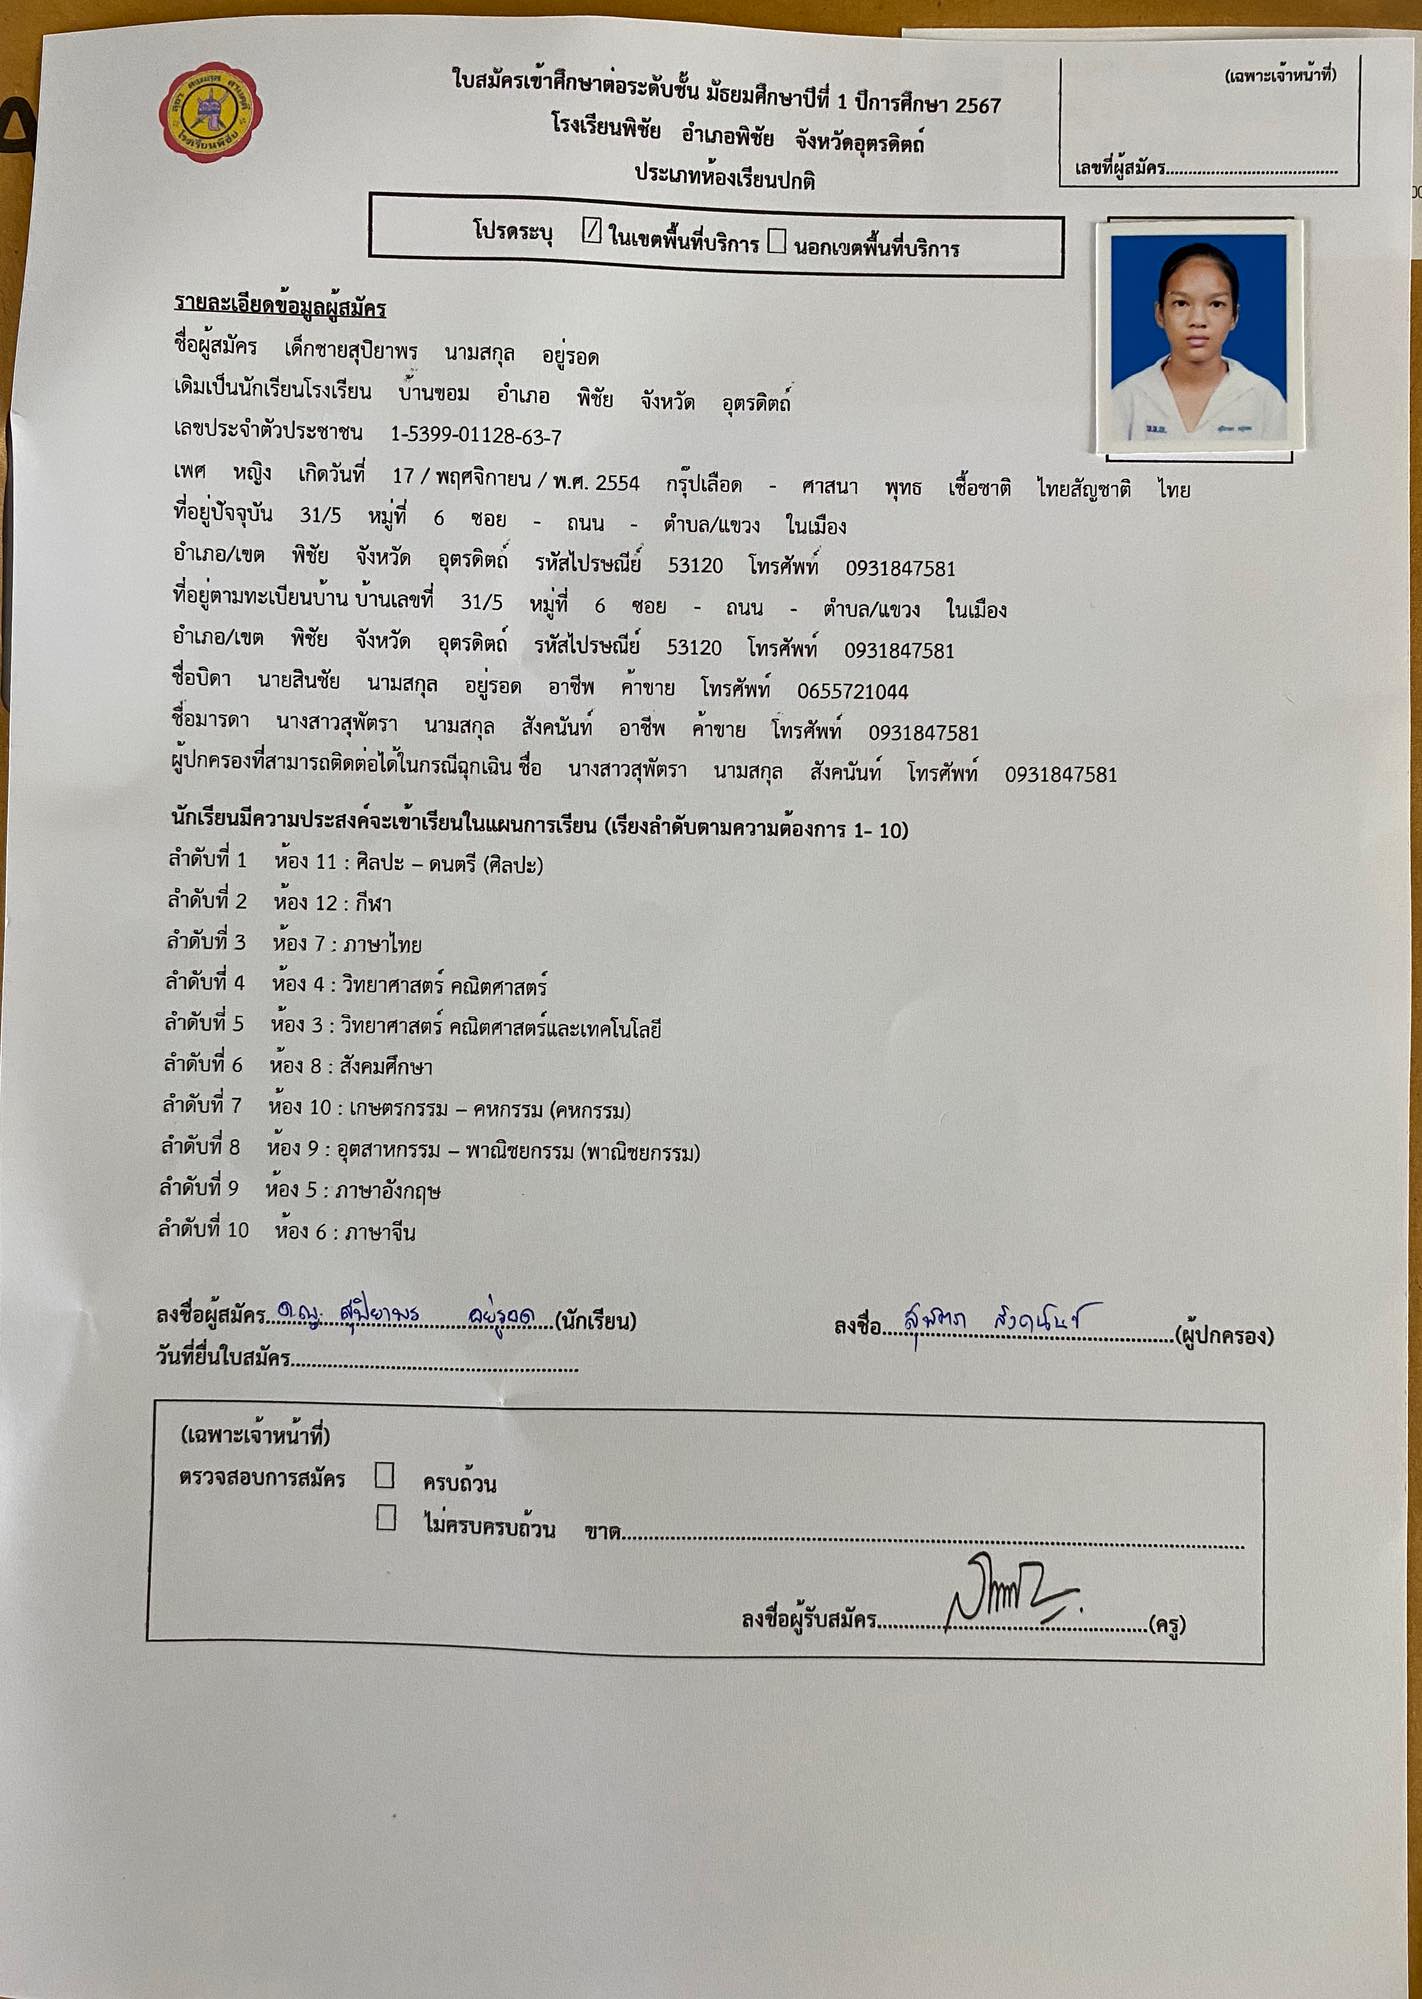 (เฉพาะเจ้าหน้าที่)
เลขที่ผู้สมัคร
โรงเรียนพิชัย
ใบสมัครเข้าศึกษาต่อระดับชั้น มัธยมศึกษาปีที่ 1 ปีการศึกษา 2567
โรงเรียนพิชัย อำเภอพิชัย จังหวัดอุตรดิตถ์
ประเภทห้องเรียนปกติ
โปรดระบุ ☑ ในเขตพื้นที่บริการ ☐ นอกเขตพื้นที่บริการ
รายละเอียดข้อมูลผู้สมัคร
ชื่อผู้สมัคร เด็กชายสุปิยาพร นามสกุล อยู่รอด
เดิมเป็นนักเรียนโรงเรียน บ้านขอม อำเภอ พิชัย จังหวัด อุตรดิตถ์
เลขประจำตัวประชาชน 1-5399-01128-63-7
เพศ หญิง เกิดวันที่ 17 / พฤศจิกายน / พ.ศ. 2554 กรุ๊ปเลือด - ศาสนา พุทธ เชื้อชาติ ไทยสัญชาติ ไทย
ที่อยู่ปัจจุบัน 31/5 หมู่ที่ 6 ซอย - ถนน - ตำบล/แขวง ในเมือง
อำเภอ/เขต พิชัย จังหวัด อุตรดิตถ์ รหัสไปรษณีย์ 53120 โทรศัพท์ 0931847581
ที่อยู่ตามทะเบียนบ้าน บ้านเลขที่ 31/5 หมู่ที่ 6 ซอย - ถนน - ตำบล/แขวง ในเมือง
อำเภอ/เขต พิชัย จังหวัด อุตรดิตถ์ รหัสไปรษณีย์ 53120 โทรศัพท์ 0931847581
ชื่อบิดา นายสินชัย นามสกุล อยู่รอด อาชีพ ค้าขาย โทรศัพท์ 0655721044
ชื่อมารดา นางสาวสุพัตรา นามสกุล สังคนันท์ อาชีพ ค้าขาย โทรศัพท์ 0931847581
ผู้ปกครองที่สามารถติดต่อได้ในกรณีฉุกเฉิน ชื่อ นางสาวสุพัตรา นามสกุล สังคนันท์ โทรศัพท์ 0931847581
นักเรียนมีความประสงค์จะเข้าเรียนในแผนการเรียน (เรียงลำดับตามความต้องการ 1- 10)
ลำดับที่ 1 ห้อง 11 : ศิลปะ – ดนตรี (ศิลปะ)
ลำดับที่ 2 ห้อง 12 : กีฬา
ลำดับที่ 3 ห้อง 7 : ภาษาไทย
ลำดับที่ 4 ห้อง 4 : วิทยาศาสตร์ คณิตศาสตร์
ลำดับที่ 5 ห้อง 3 : วิทยาศาสตร์ คณิตศาสตร์และเทคโนโลยี
ลำดับที่ 6 ห้อง 8 : สังคมศึกษา
ลำดับที่ 7 ห้อง 10 : เกษตรกรรม – คหกรรม (คหกรรม)
ลำดับที่ 8 ห้อง 9 : อุตสาหกรรม – พาณิชยกรรม (พาณิชยกรรม)
ลำดับที่ 9 ห้อง 5 : ภาษาอังกฤษ
ลำดับที่ 10 ห้อง 6 : ภาษาจีน
ลงชื่อผู้สมัคร ด.ญ. สุปิยาพร อยู่รอด (นักเรียน) ลงชื่อ สุพัตรา สังคนันท์ (ผู้ปกครอง)
วันที่ยื่นใบสมัคร
(เฉพาะเจ้าหน้าที่)
ตรวจสอบการสมัคร ☐ ครบถ้วน
☐ ไม่ครบครบถ้วน ขาด
ลงชื่อผู้รับสมัคร (ครู)